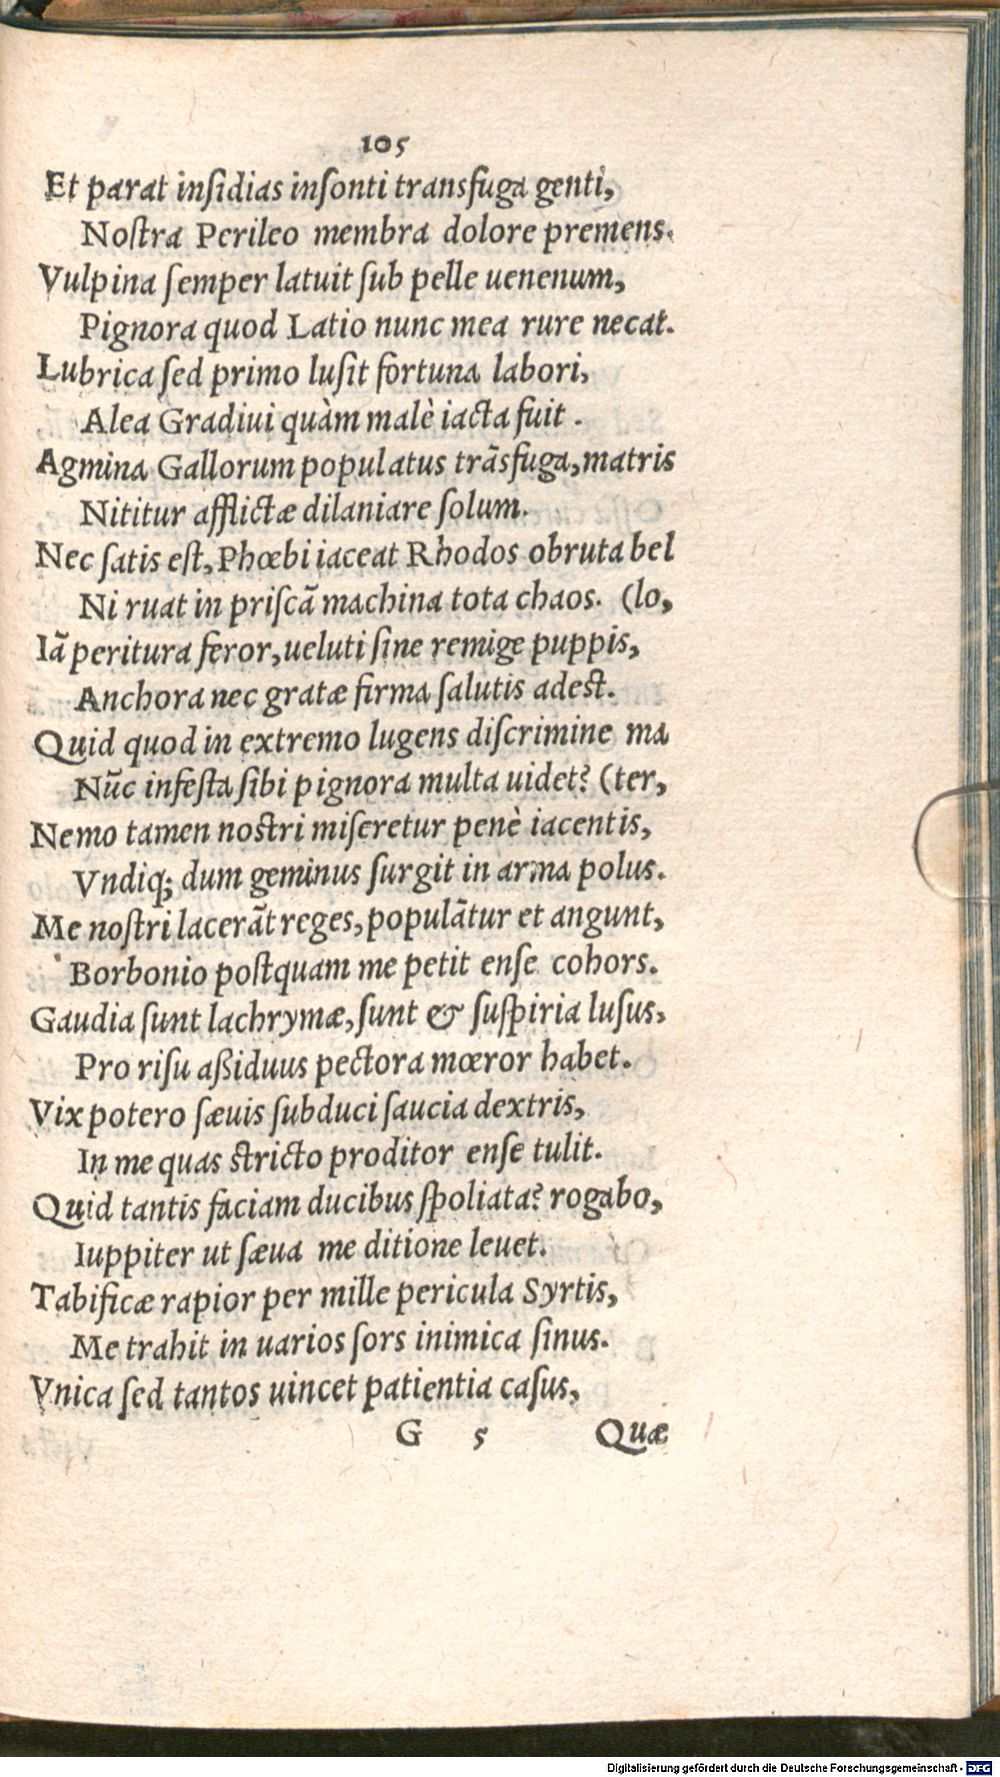 105
Et parat inſidias inſonti transfuga genti,
Noſtra Perileo membra dolore premens.
Vulpina ſemper latuit ſub pelle uenenum,
Pignora quod Latio nunc mea rure necat.
Lubrica ſed primo luſit fortuna labori,
Alea Gradiui quàm malè iacta fuit.
Agmina Gallorum populatus trãsfuga, matris
Nititur afflictæ dilaniare ſolum.
Nec ſatis eſt, Phœbi iaceat Rhodos obruta bel
Ni ruat in priſcã machina tota chaos. (lo,
Iã peritura feror, ueluti ſine remige puppis,
Anchora nec gratæ firma ſalutis adest.
Quid quod in extremo lugens diſcrimine ma
Nũc infeſta ſibi pignora multa uidet? (ter,
Nemo tamen nostri miſeretur penè iacentis,
Vndiq; dum geminus ſurgit in arma polus.
Me noſtri lacerãt reges, populãtur et angunt,
Borbonio postquam me petit enſe cohors.
Gaudia ſunt lachrymæ, ſunt & ſuſpiria luſus,
Pro riſu aßiduus pectora mœror habet.
Vix potero ſæuis ſubduci ſaucia dextris,
In me quas stricto proditor enſe tulit.
Quid tantis faciam ducibus ſpoliata? rogabo,
Iuppiter ut ſæua me ditione leuet.
Tabificæ rapior per mille pericula Syrtis,
Me trahit in uarios ſors inimica ſinus.
Vnica ſed tantos uincet patientia caſus,
G 5 Quæ
Digitalisierung gefördert durch die Deutsche Forschungsgemeinschaft - DFG